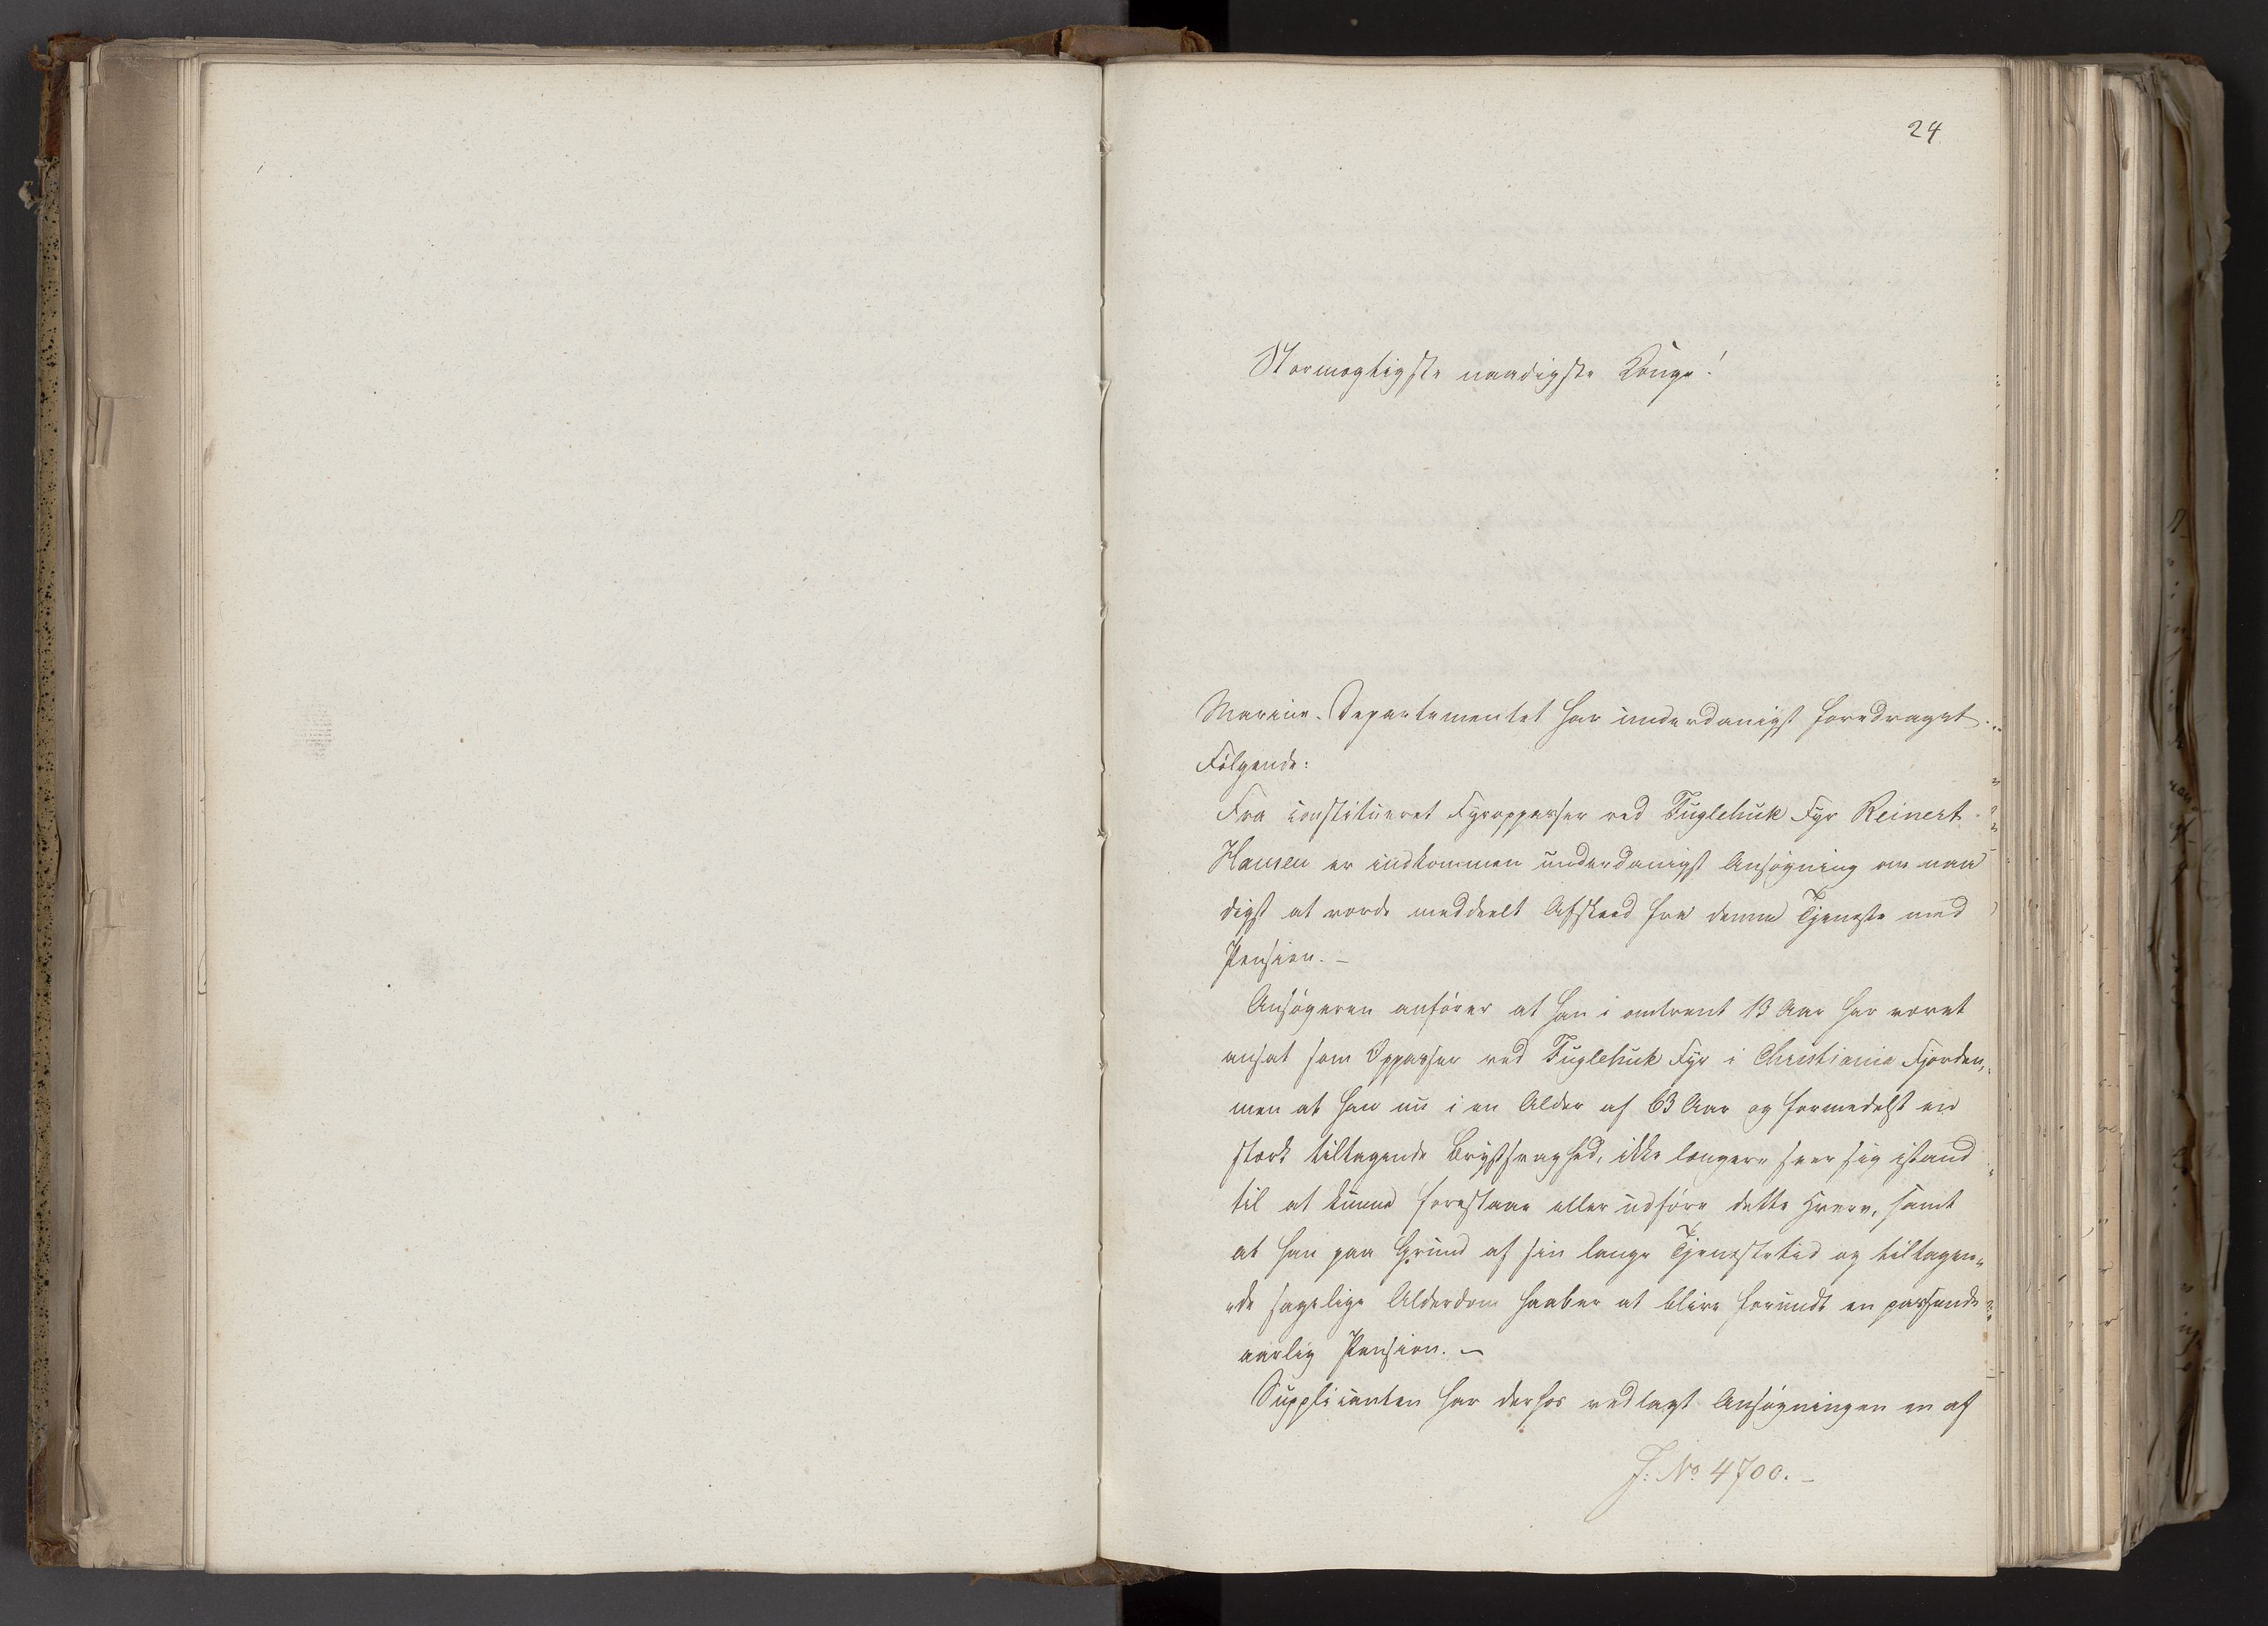 24
Stormægtigste naadigste Konge!
Marine-Departementet har underdanigst foredraget
Følgende:
Fra constitueret Fyropparser ved Fuglehuk Fyr Reinert
Hansen er indkommen underdanigst Ansøgning om naa
digst at vorde meddeelt Afskeed fra denne Tjeneste med
Pension. –
Ansøgeren anfører at han i omtrent 13 Aar har været
ansat som Oppasser ved Fuglehuk Fyr i Christiania Fjorden,
men at han nu i en Alder af 63 Aar og formedelst en
stærk tiltagende Brystsvaghed, ikke længere seer sig istand
til at kunne forestaae eller udføre dette Hverv, samt
at han paa Grund af sin lange Tjenestetid og tiltagen„
„de Alderdom haaber at blive forundt en passende
aarlig Pension. –
Supplicanten har derhos vedlagt Ansøgningen en af
J: No 4700. –